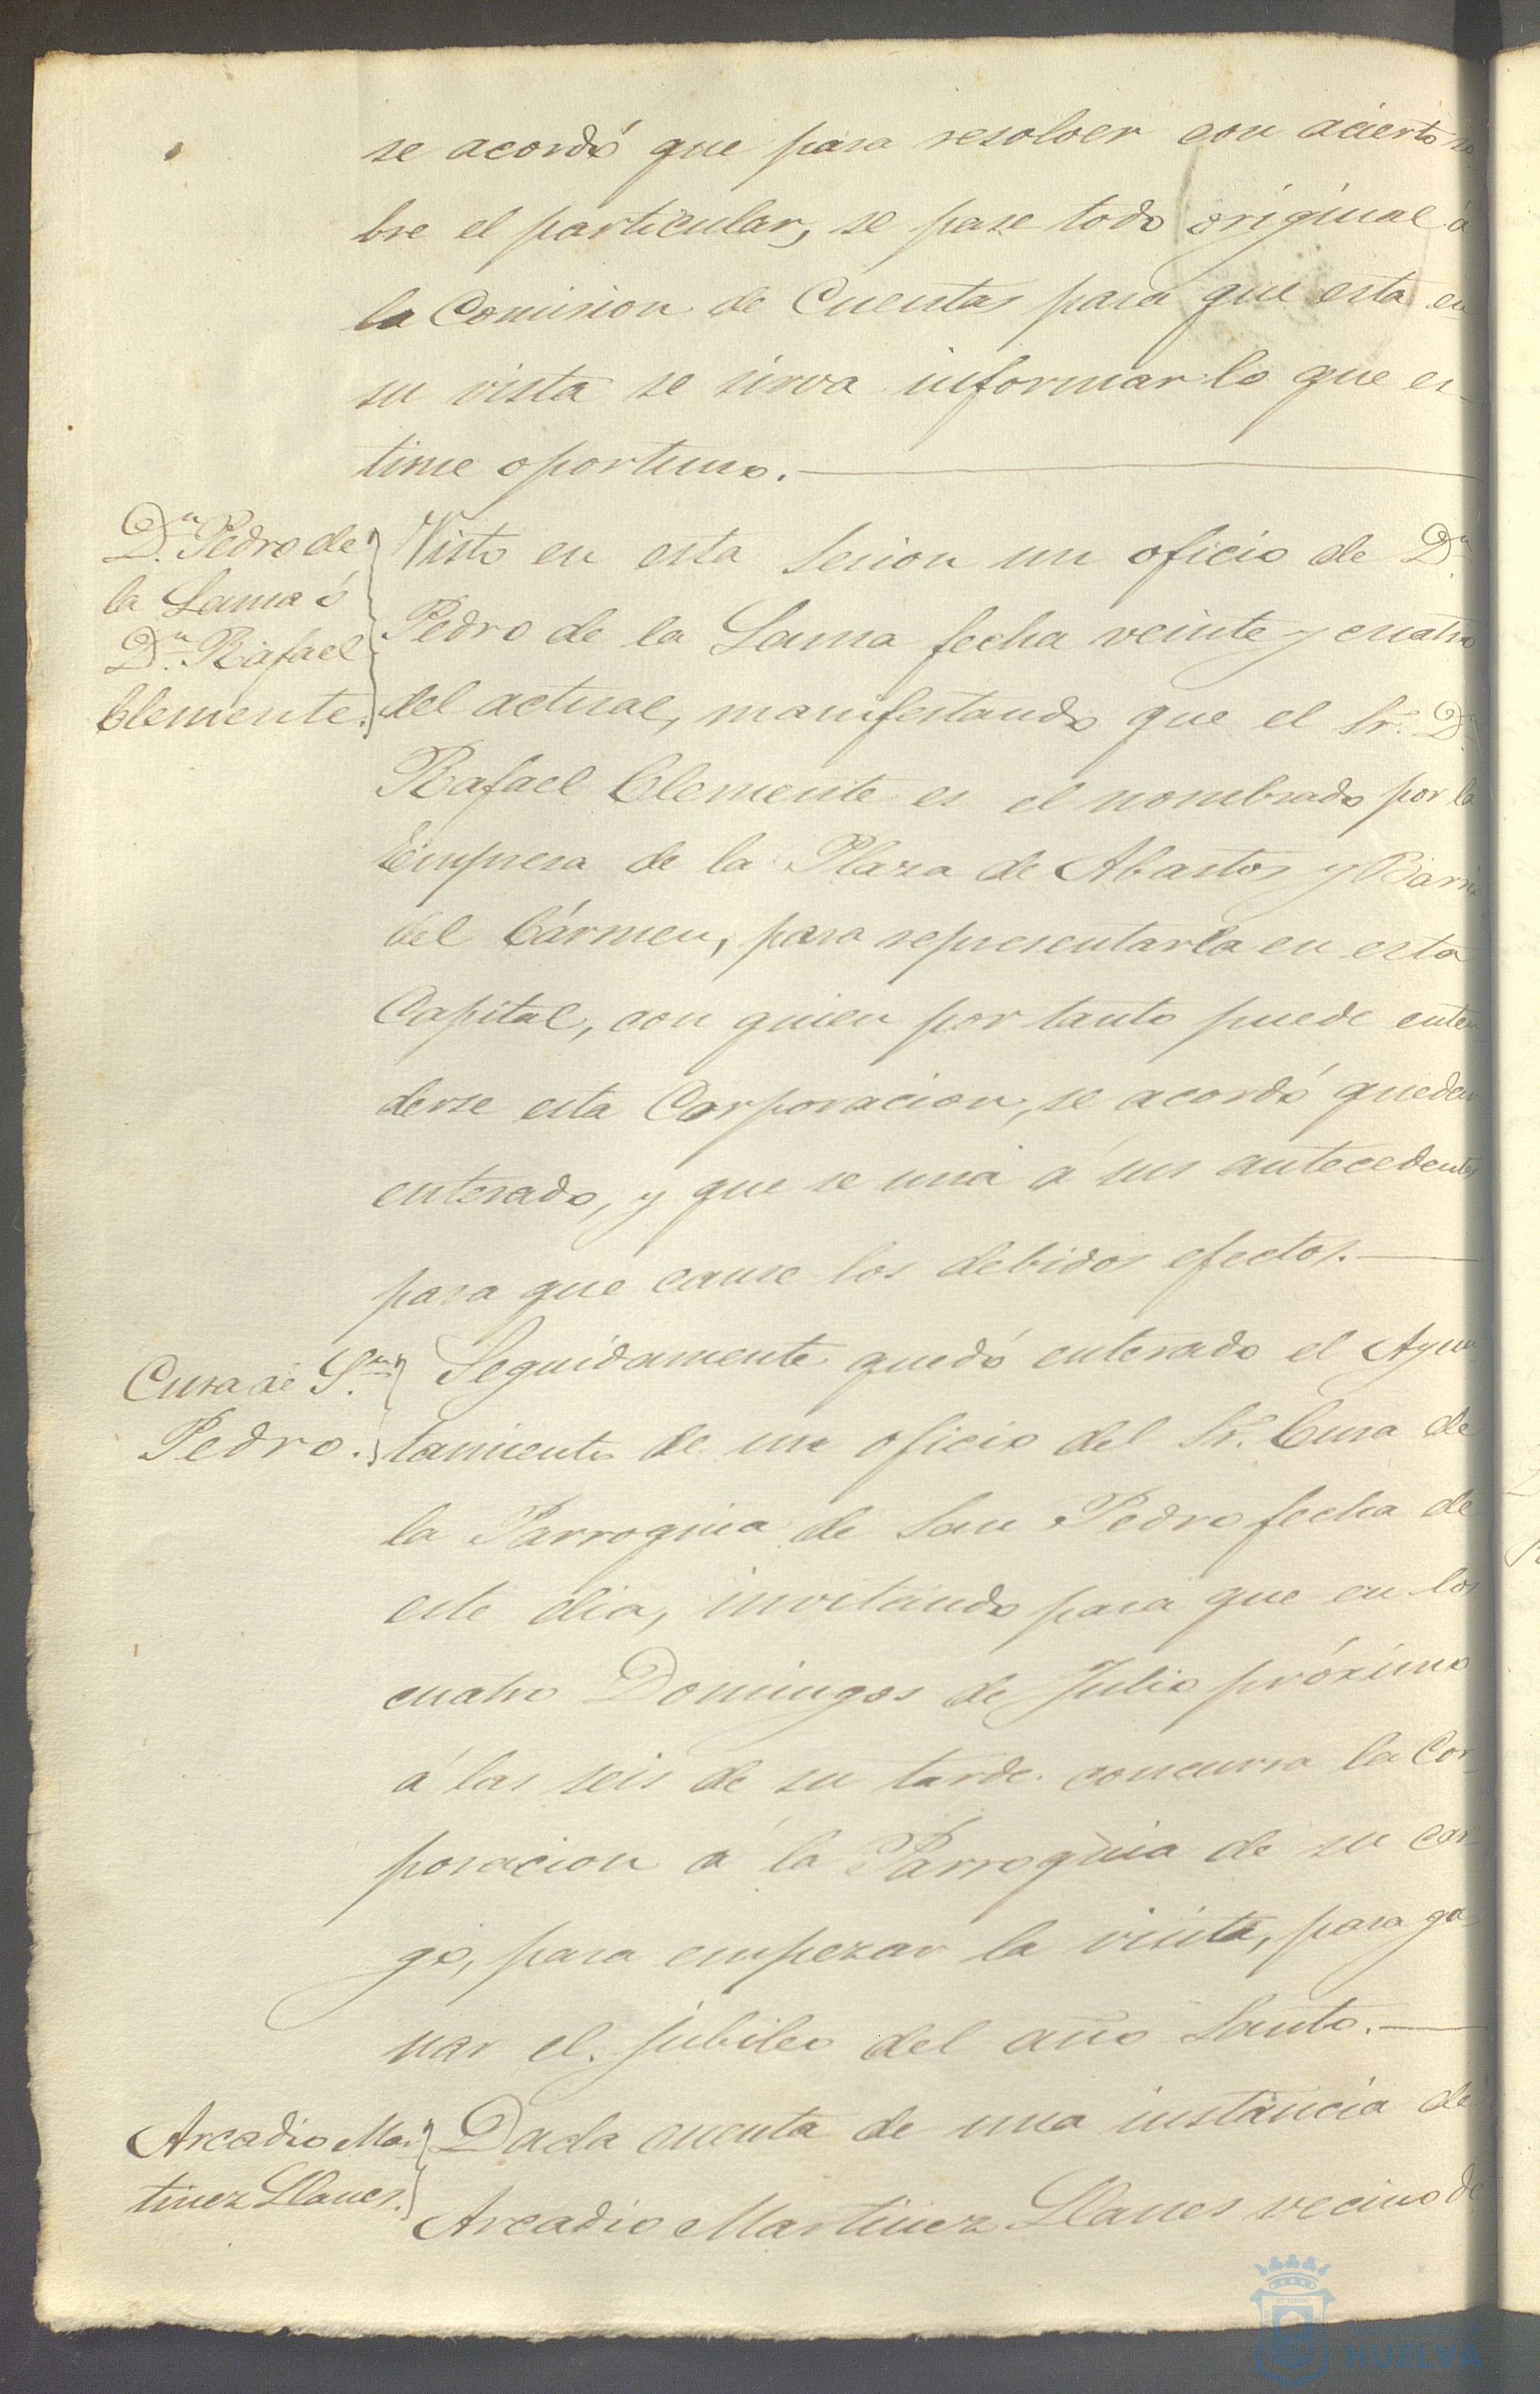 se acordó que para resolver con acierto so
bre el particular, se pase todo original á
la Comision de Cuentas para que esta en
su vista se sirva informar lo que es-
time oportuno.
Dn. Pedro de
la Lama ó
Dn. Rafael
Clemente.
Visto en esta sesion un oficio de Dn.
Pedro de la Lama fecha veinte y cuatro
del actual, manifestando que el Sr. Dn.
Rafael Clemente es el nombrado por la
Empresa de la Plaza de Abastos y Barrio
del Cármen, para representarla en esta
Capital, con quien por tanto puede enten-
derse esta Corporacion, se acordó quedar
enterado, y que se una á sus antecedentes
para que cause los debidos efectos.
Cura de Sn.
Pedro.
Seguidamente quedó enterado el Ayun-
tamiento de un oficio del Sr. Cura de
la Parroquia de San Pedro fecha de
este dia, invitando para que en los
cuatro Domingos de Julio próximo
á las seis de su tarde concurra la Cor-
poracion á la Parroquia de su car-
go, para empezar la visita, para ga-
nar el jubileo del año Santo.
Arcadio Mar-
tinez Llanes.
Dada cuenta de una instancia de
Arcadio Martinez Llanes vecino de
HUELVA